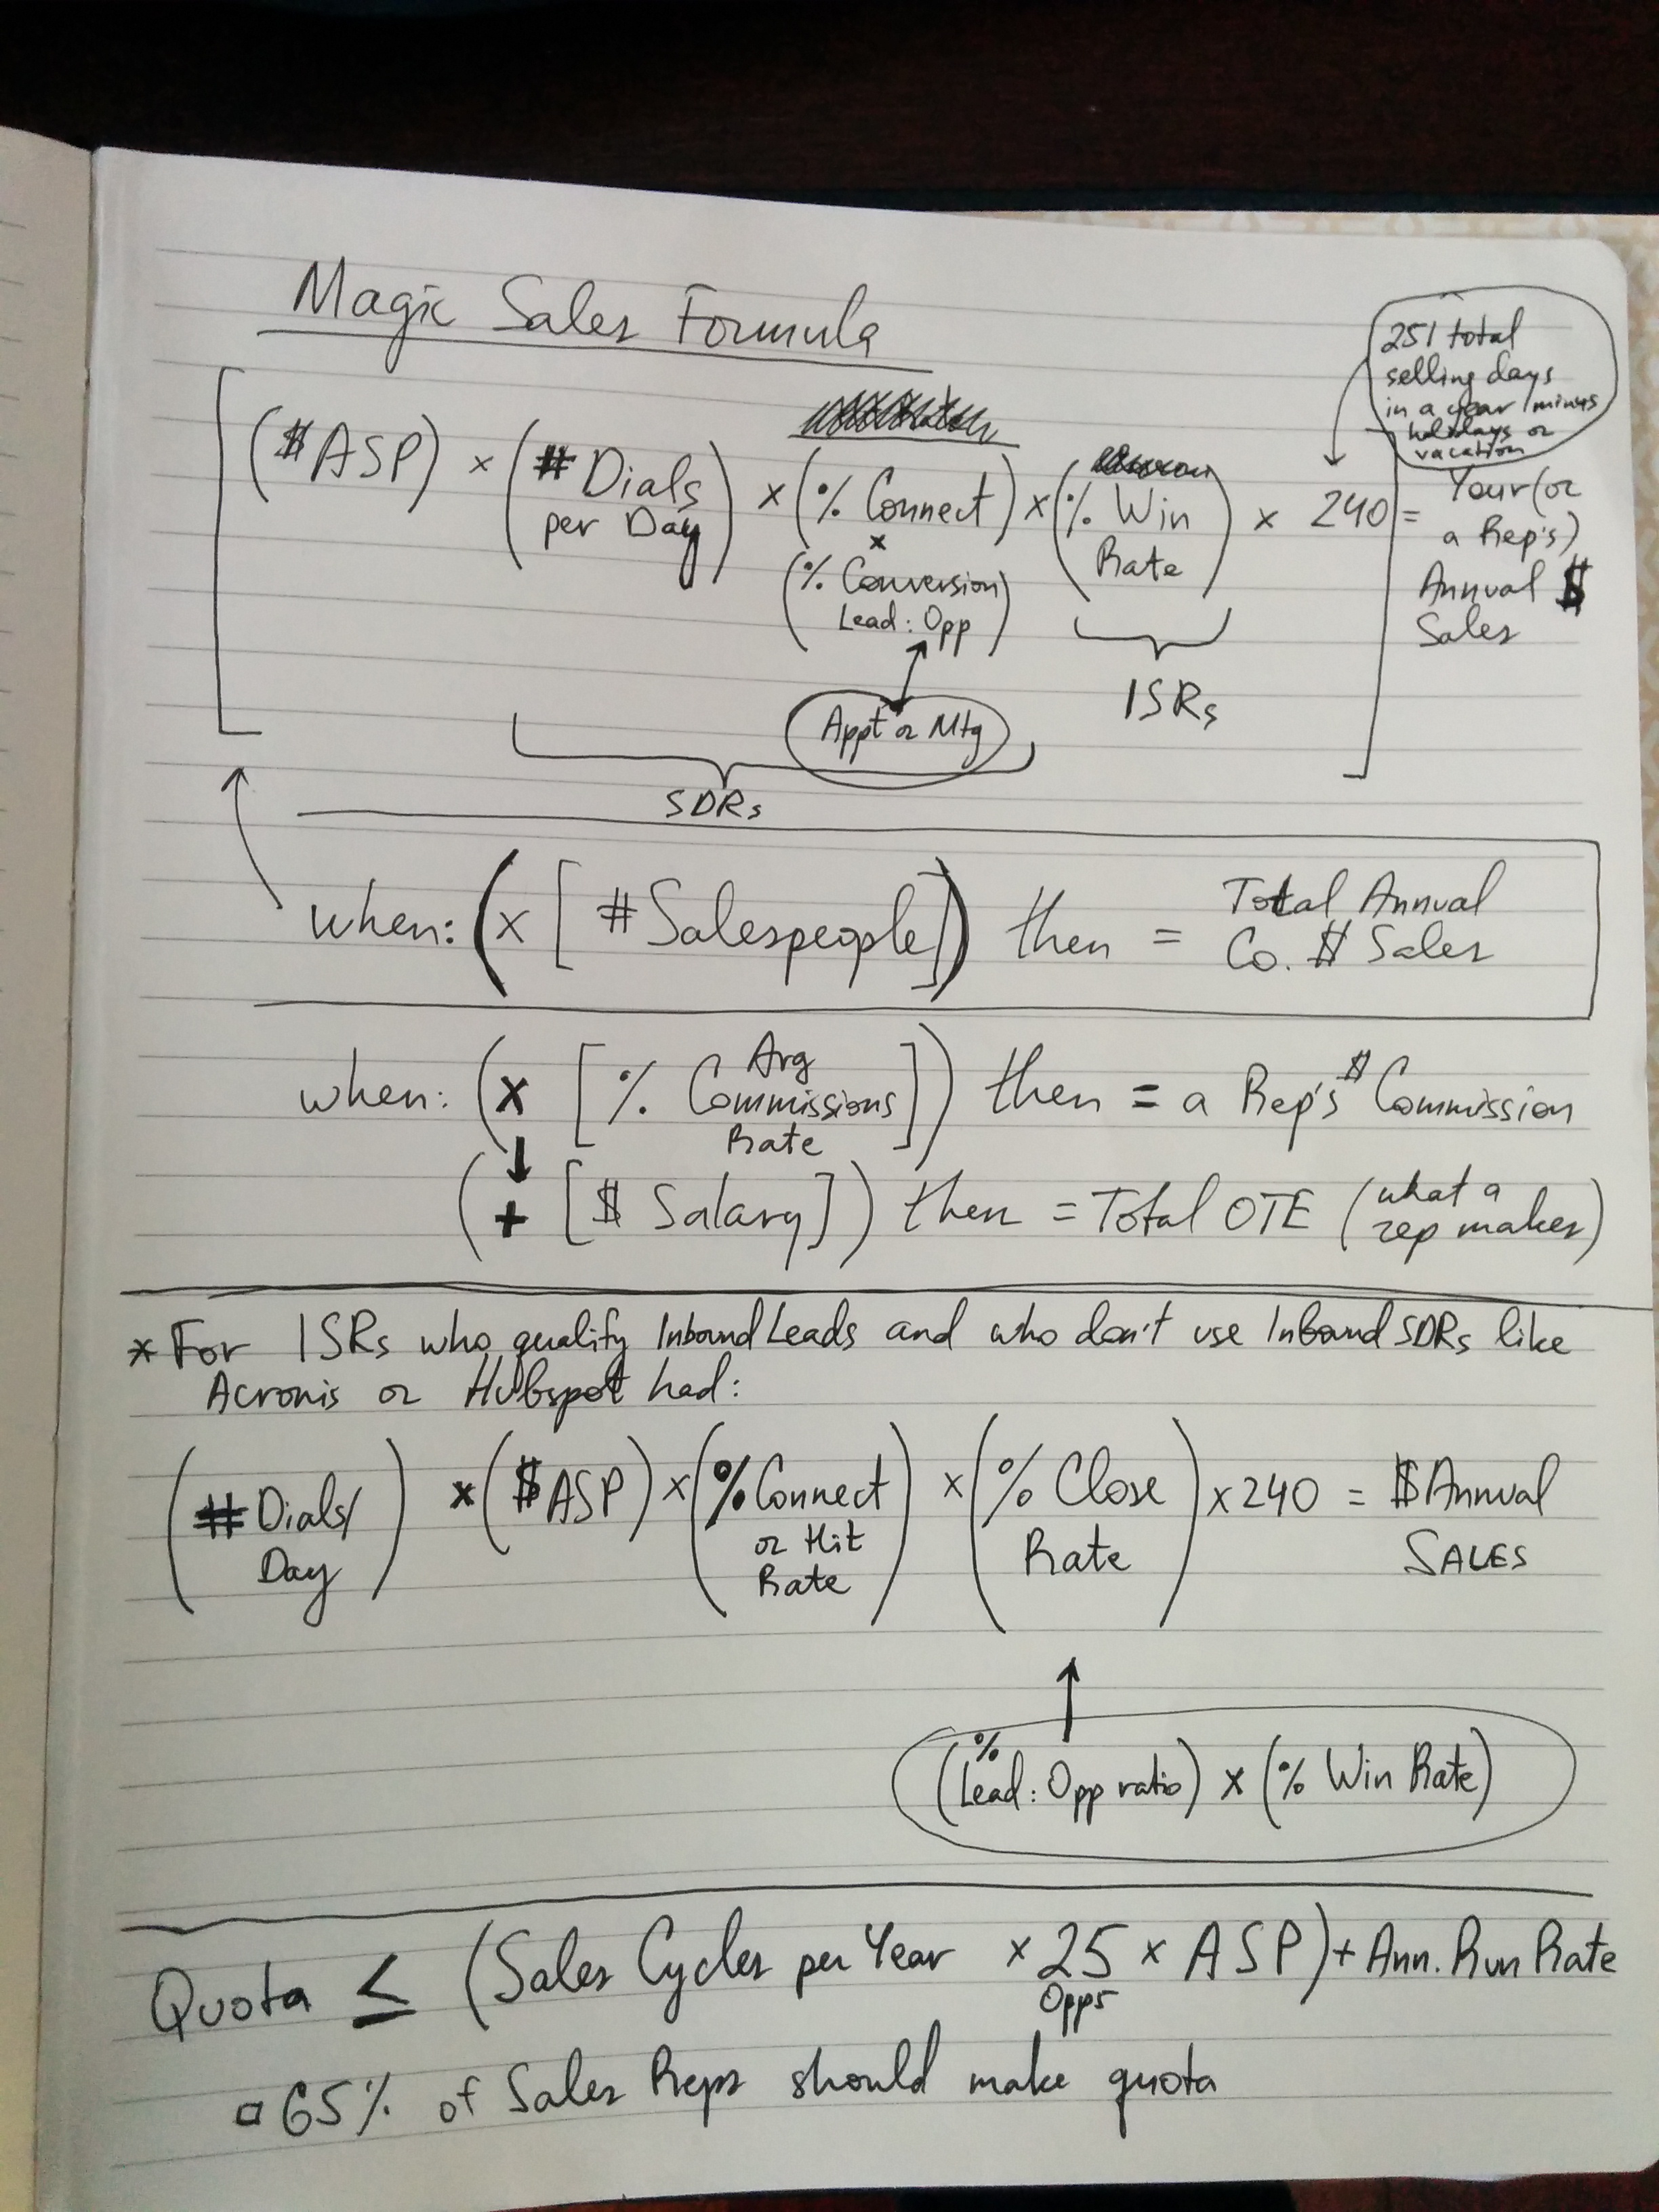 Magic Sales Formula
251 total
selling days
in a year / minus
holidays or
vacation
[($ ASP) × (# Dials per Day) × (% Connect) × (% Win Rate) × 240] = Your (or a Rep's) Annual $ Sales
×
(% Conversion
Lead : Opp)
Appt or Mtg
ISRs
SDRs
when: (× [# Salespeople]) then = Total Annual Co. $ Sales
when: (× [% Avg Commissions Rate]) then = a Rep's $ Commission
(+ [$ Salary]) then = Total OTE (what a rep makes)
* For ISRs who qualify Inbound Leads and who don't use Inbound SDRs like
Acronis or Hubspot had:
(# Dials/ Day) × ($ ASP) × (% Connect or Hit Rate) × (% Close Rate) × 240 = $ Annual SALES
(% Lead : Opp ratio) × (% Win Rate)
Quota ≤ (Sales Cycles per Year × 25 Opps × ASP) + Ann. Run Rate
65% of Sales Reps should make quota